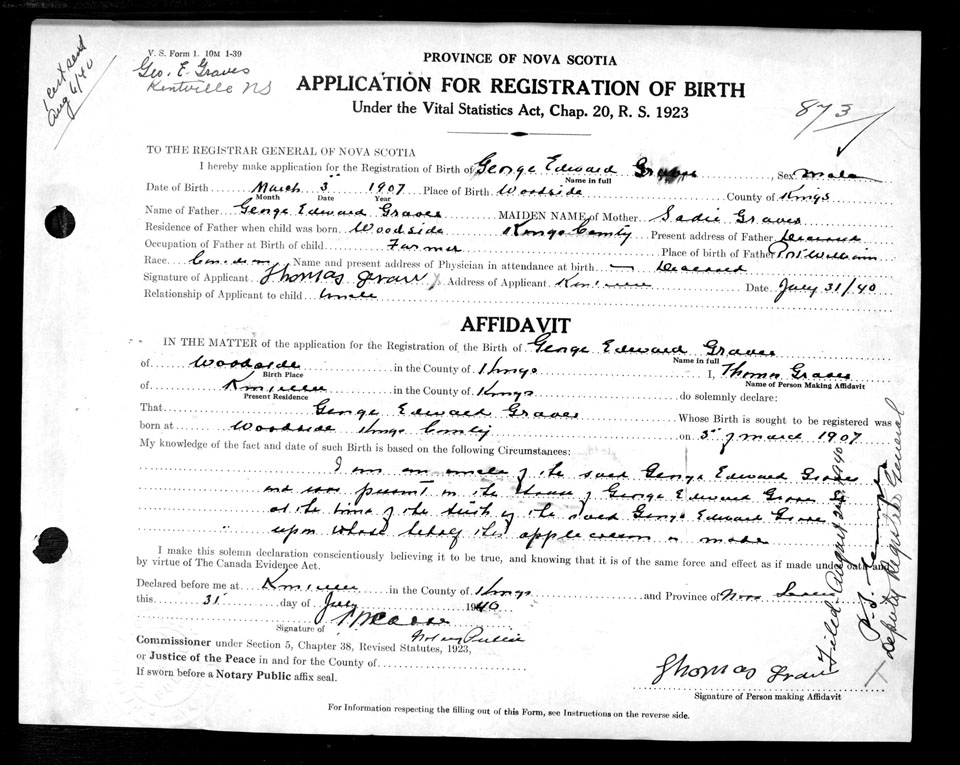 cert sent
Aug 6/40
V. S. Form 1. 10M 1-39
Geo. E. Graves
Kentville NS
PROVINCE OF NOVA SCOTIA
APPLICATION FOR REGISTRATION OF BIRTH
Under the Vital Statistics Act, Chap. 20, R. S. 1923
873
TO THE REGISTRAR GENERAL OF NOVA SCOTIA
I hereby make application for the Registration of Birth of George Edward Graves, Sex male
Name in full
Date of Birth March 3 1907 Place of Birth Woodside County of Kings
Month Date Year
Name of Father George Edward Graves MAIDEN NAME of Mother Sadie Graves
Residence of Father when child was born Woodside Kings County Present address of Father Deceased
Occupation of Father at Birth of child Farmer Place of Birth of Father Port William
Race Canadian Name and present address of Physician in attendance at birth — Deceased
Signature of Applicant Thomas Graves Address of Applicant Kentville Date July 31/40
Relationship of Applicant to child Uncle
AFFIDAVIT
IN THE MATTER of the application for the Registration of the Birth of George Edward Graves
Name in full
of Woodside in the County of Kings I, Thomas Graves
Birth Place Name of Person Making Affidavit
of Kentville in the County of Kings do solemnly declare:
Present Residence
That George Edward Graves Whose Birth is sought to be registered was
born at Woodside Kings County on 3 of March 1907
My knowledge of the fact and date of such Birth is based on the following Circumstances:
I am an uncle of the said George Edward Graves
and was present in the House of George Edward Graves Sr
at the time of the birth of the said George Edward Graves
upon whose behalf this application is made
I make this solemn declaration conscientiously believing it to be true, and knowing that it is of the same force and effect as if made under oath and
by virtue of The Canada Evidence Act.
Declared before me at Kentville in the County of Kings and Province of Nova Scotia
this 31 day of July 1940
Signature of
Notary Public
Commissioner under Section 5, Chapter 38, Revised Statutes, 1923,
or Justice of the Peace in and for the County of
If sworn before a Notary Public affix seal.
Thomas Graves
Signature of Person making Affidavit
For Information respecting the filling out of this Form, see Instructions on the reverse side.
Filed: August 2nd 1940
Deputy Registrar General